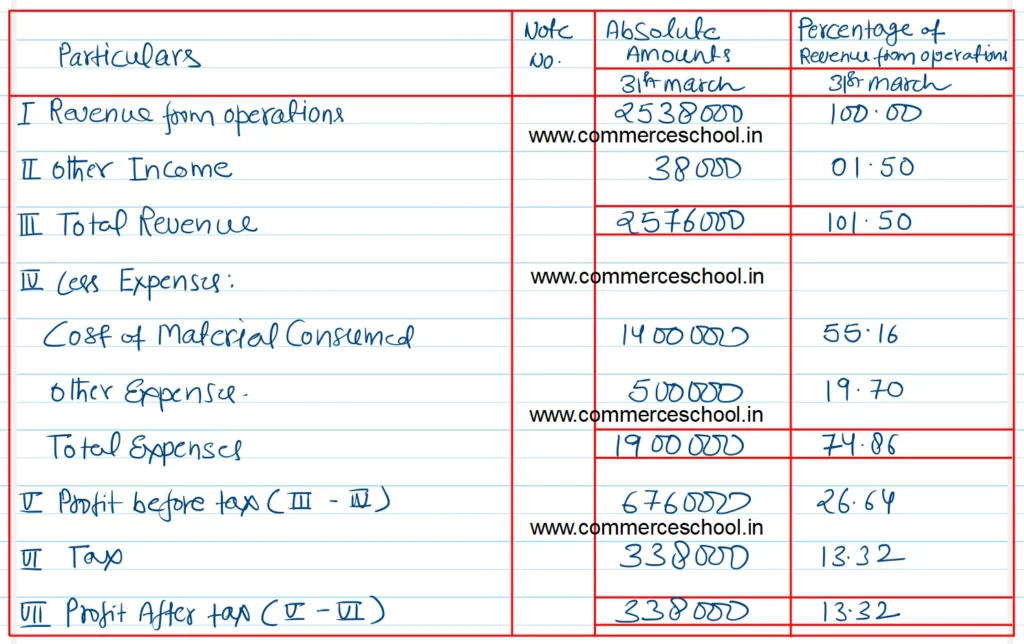 Particulars Note No. Absolute Amounts Percentage of Revenue from operations
31st march 31st march
I Revenue from operations 2538000 100.00
www.commerceschool.in
II Other Income 38000 01.50
III Total Revenue 2576000 101.50
IV Less Expenses: www.commerceschool.in
Cost of Material Consumed 1400000 55.16
Other Expense. 500000 19.70
www.commerceschool.in
Total Expenses 1900000 74.86
V Profit before tax (III - IV) 676000 26.64
www.commerceschool.in
VI Tax 338000 13.32
VII Profit After tax (V - VI) 338000 13.32